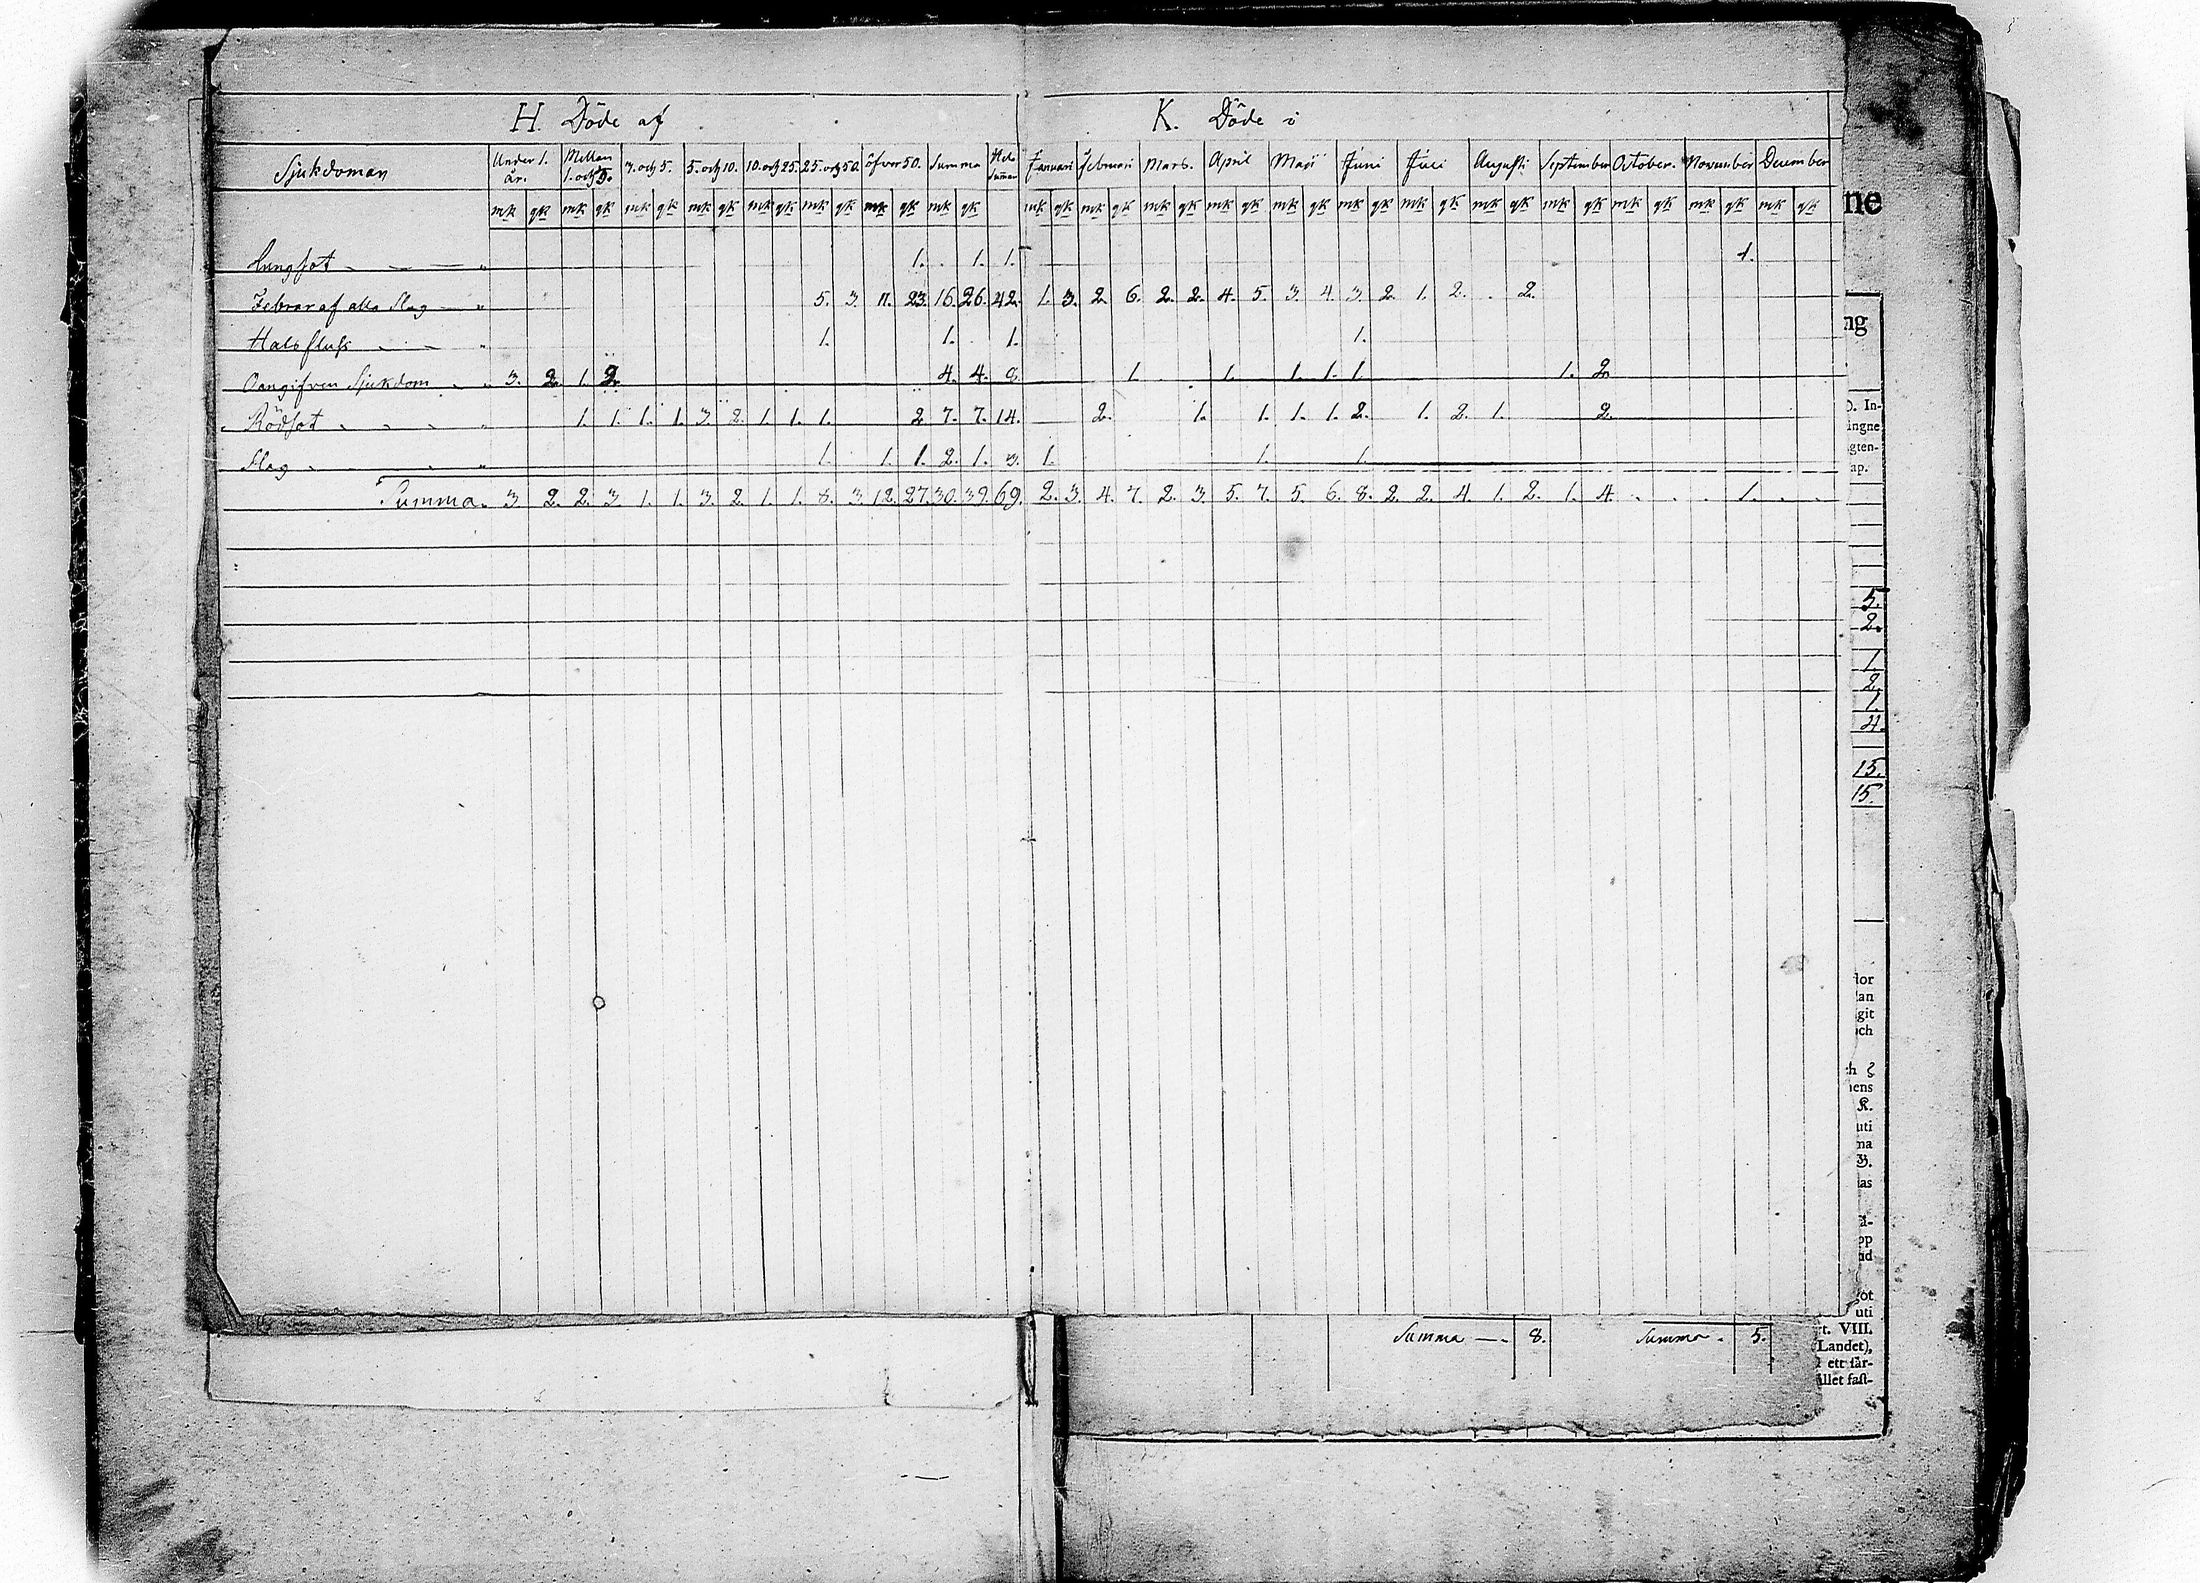 H. Döde af
K. Döde i
Sjukdomar Under 1. år. Mellan 1. och 3. 3. och 5. 5. och 10. 10. och 25. 25. och 50. öfver 50. Summa Hela Summan Januari Februari Mars. April Maji Juni Juli Augusti September October. November December
mk qk mk qk mk qk mk qk mk qk mk qk mk qk mk qk mk qk mk qk mk qk mk qk mk qk mk qk mk qk mk qk mk qk mk qk mk qk mk qk
Lungsot 1. 1. 1. 1.
Febrar af alla slag 5. 3. 11. 23. 16. 26. 42. 1. 3. 2. 6. 2. 2. 4. 5. 3. 4. 3. 2. 1. 2. 2.
Halsfluss 1. 1. 1. 1.
Oangifven Sjukdom 3. 2. 1. 2. 4. 4. 8. 1. 1. 1. 1. 1. 1. 2.
Rödsot 1. 1. 1. 1. 3. 2. 1. 1. 1. 2. 7. 7. 14. 2. 1. 1. 1. 1. 2. 1. 2. 1. 2.
Slag 1. 1. 1. 2. 1. 3. 1. 1. 1.
Summa 3. 2. 2. 3. 1. 1. 3. 2. 1. 1. 8. 3. 12. 27. 30. 39. 69. 2. 3. 4. 7. 2. 3. 5. 7. 5. 6. 8. 2. 2. 4. 1. 2. 1. 4. 1.
Summa 8. Summa 5.
ne
ng
D. In-
ingne
gten-
ap.
5.
2.
1.
2.
1.
4.
15.
15.
dor
lan
git
och
ch
nens
K.
uti
ma
B.
las
d-
pp
id
ot
uti
t. VIII.
Landet),
ett får-
ållet faſt-